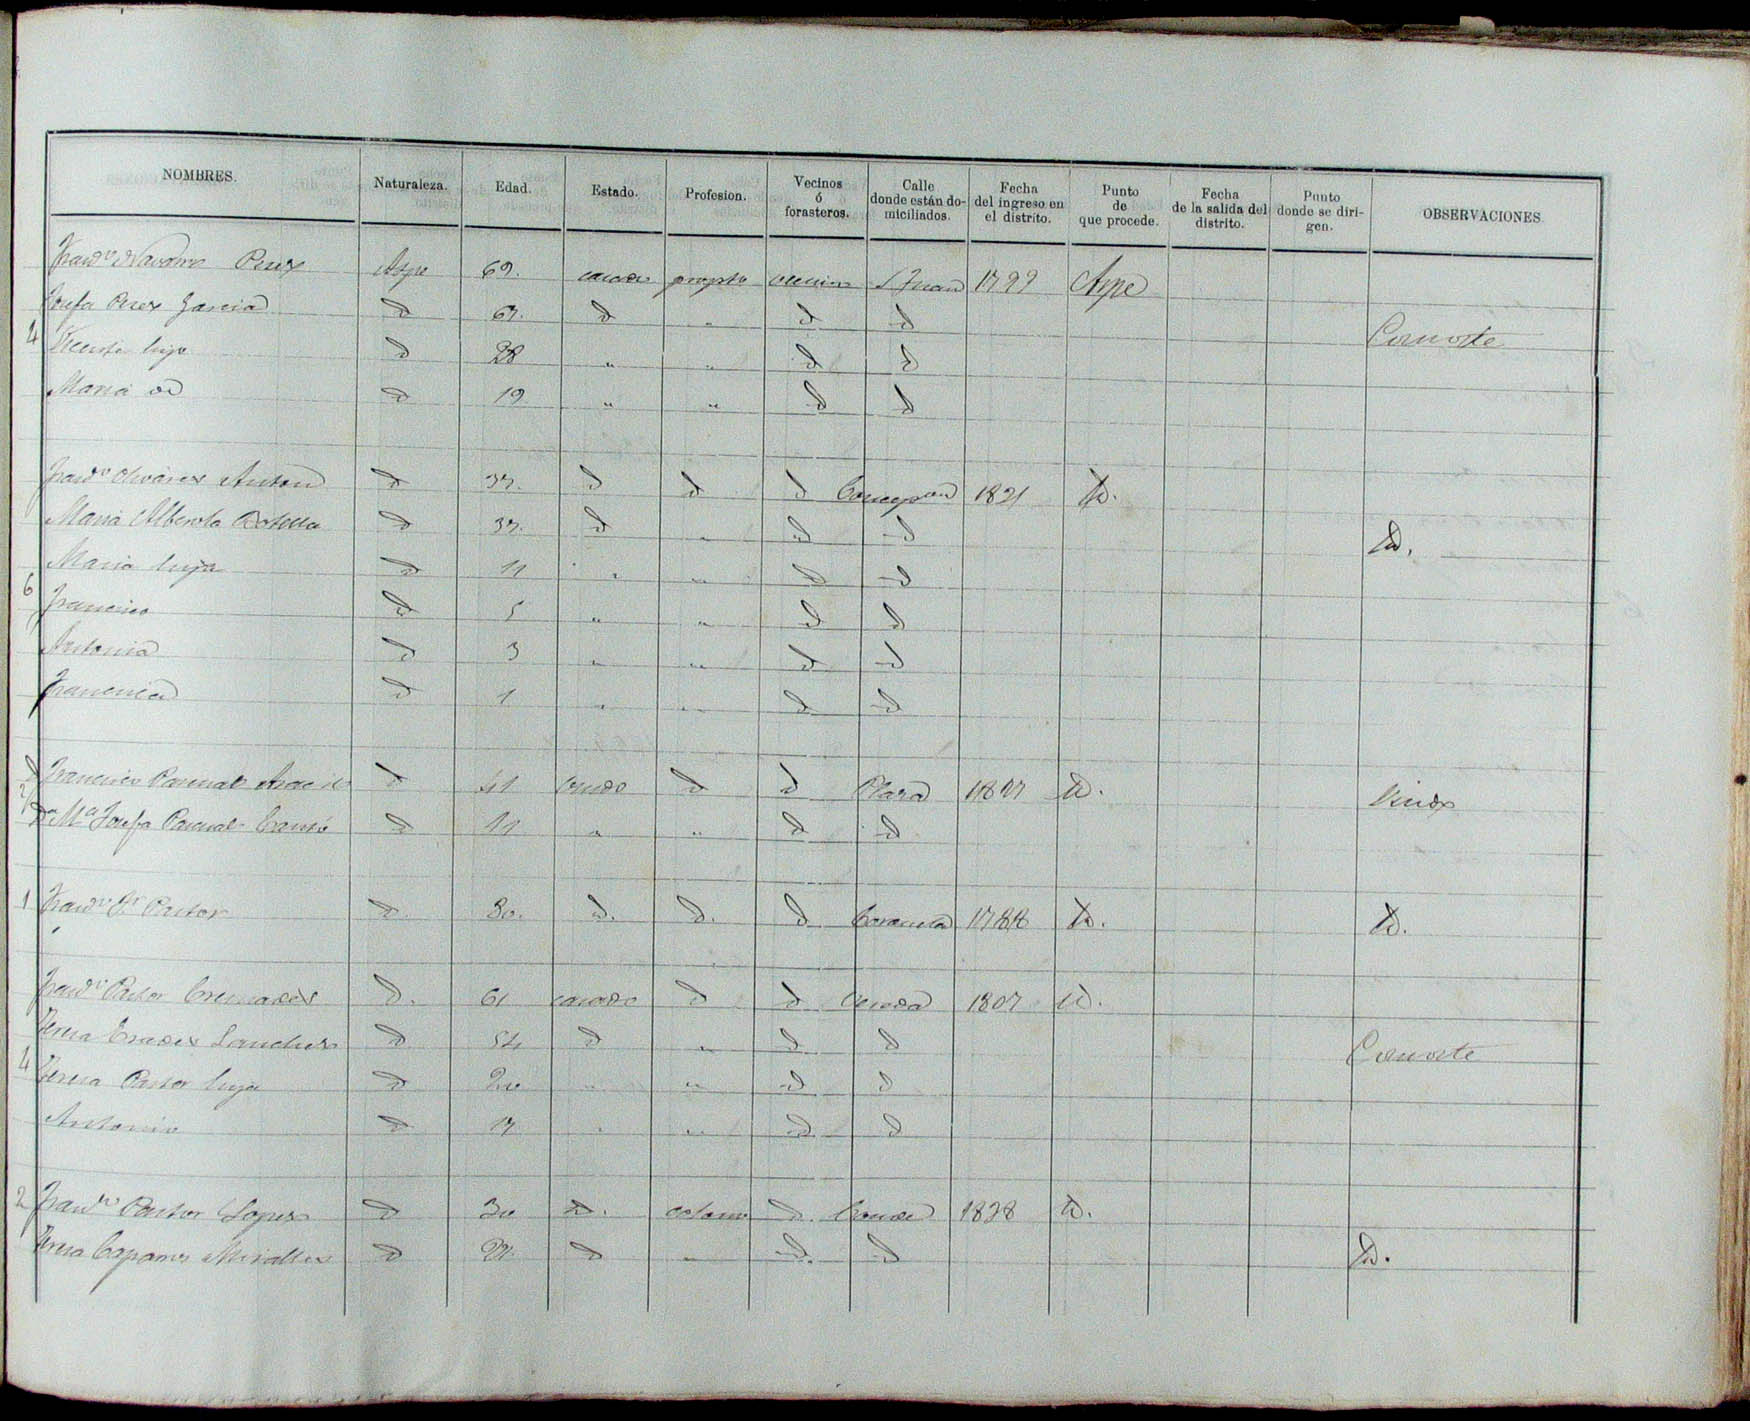 NOMBRES. Naturaleza. Edad. Estado. Profesion. Vecinos ó forasteros. Calle donde están domiciliados. Fecha del ingreso en el distrito. Punto de que procede. Fecha de la salida del distrito. Punto donde se dirigen. OBSERVACIONES
Franco Navarro Perez Aspe 69. casado propto vecino S Juan 1799 Aspe
Josefa Perez Garcia d 67. d " d d Consorte
4 Vicente hijo d 28 " " d d
Maria id d 19 " " d d
Franco Olivares Anton d 37. d d d Concepcion 1821 Id.
Maria Alberola Botella d 37. d " d d Id.
Maria hija d 11 " " d d
6 Francisco d 5 " " d d
Antonia d 3 " " d d
Francisca d 1 " " d d
D Francisco Pascual d 41 viudo d d Plaza Id. Viudo
2 Da Ma Josefa Pascual Cantó d 11 " " d d
1 Franco Pastor d. 80. d. d. d 1788 Id. Id.
Franco Pastor Cremades d. 61 casado d d 1807 Id.
Teresa Sanchez d 54 d " d d Consorte
4 Teresa Pastor hija d 20 " " d d
Antonio d 17 " " d d
2 Franco Pastor Lopez d 30 d. colono d. 1828 Id.
Teresa Miralles d d " d. d Id.